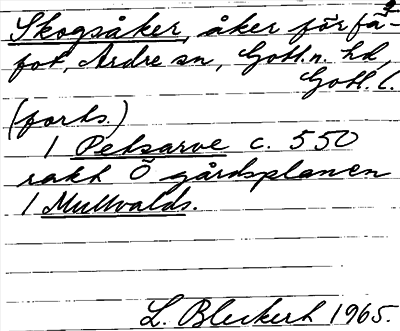 Skogsåker, åker för få-
fot, Ardre sn, Gotl. n. hd,
Gotl. l.
(forts.)
1 Petsarve c. 550
rakt Ö gårdsplanen
1 Mullvalds.
L. Bleckert 1965.